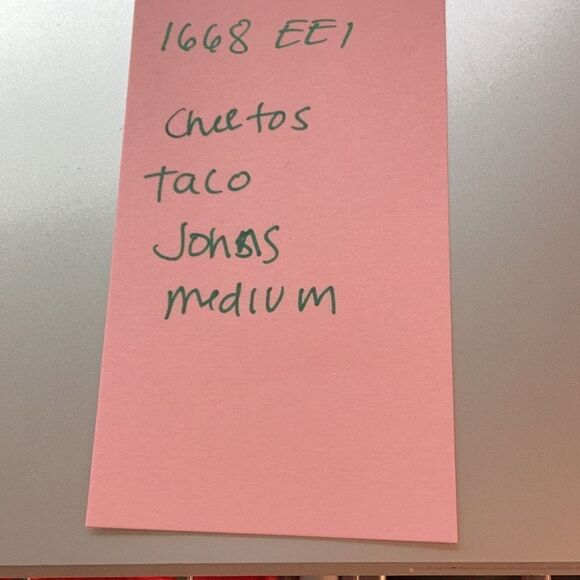 1668 EE1
Cheetos
taco
Johns
medium